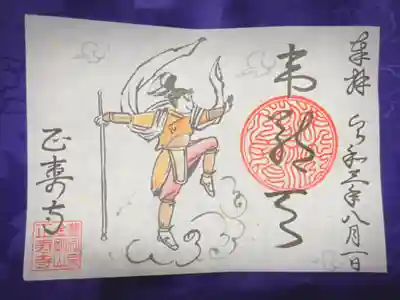 奉拝 令和三年八月一日
韋駄天
正寿寺